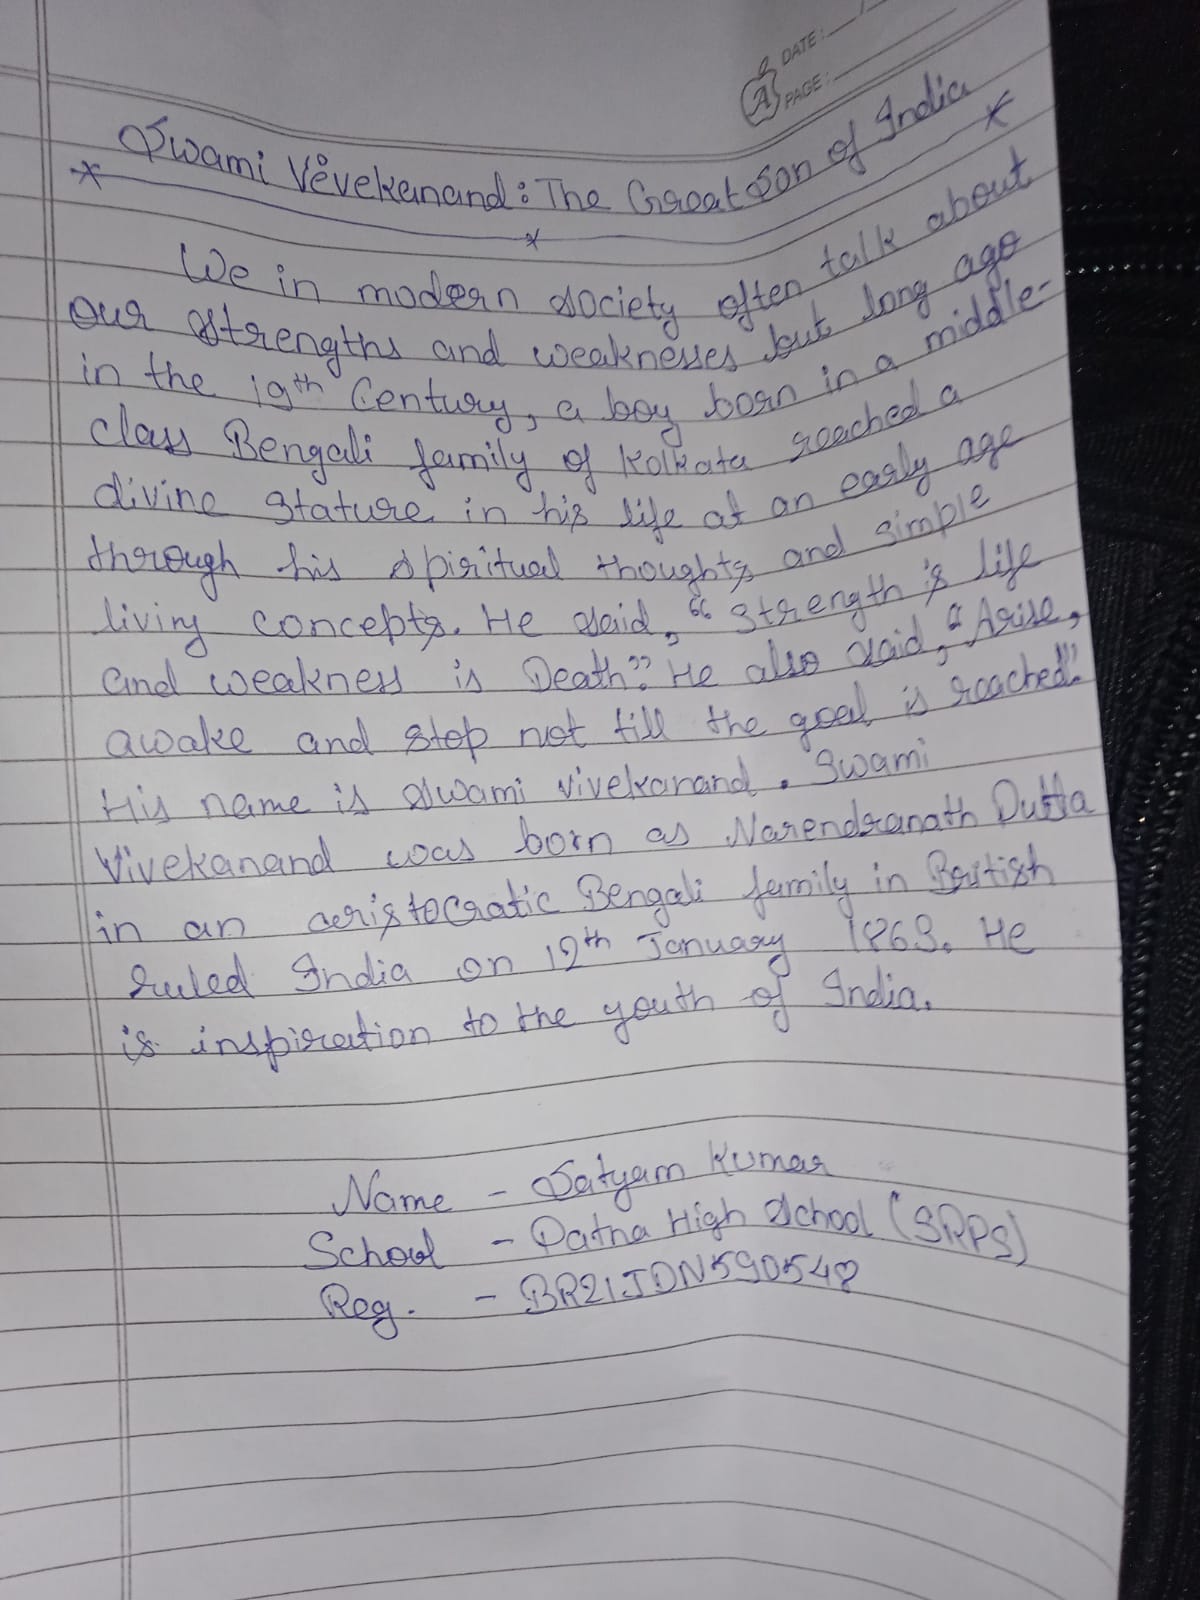 DATE:
PAGE:
A
Swami Vevekanand: The Great Son of India
We in modern society often talk about
our strengths and weaknesses but long ago
in the 19th Century, a boy born in a middle-
class Bengali family of Kolkata reached a
divine stature in his life at an early age
through his spiritual thoughts and simple
living concepts. He said, "Strength is life
and weakness is Death". He also said, "Arise,
awake and stop not till the goal is reached."
His name is Swami Vivekanand. Swami
Vivekanand was born as Narendranath Dutta
in an aristocratic Bengali family in British
ruled India on 12th January 1863. He
is inspiration to the youth of India.
Name - Satyam Kumar
School - Patna High School (SRPS)
Reg. - BR21JDN590548